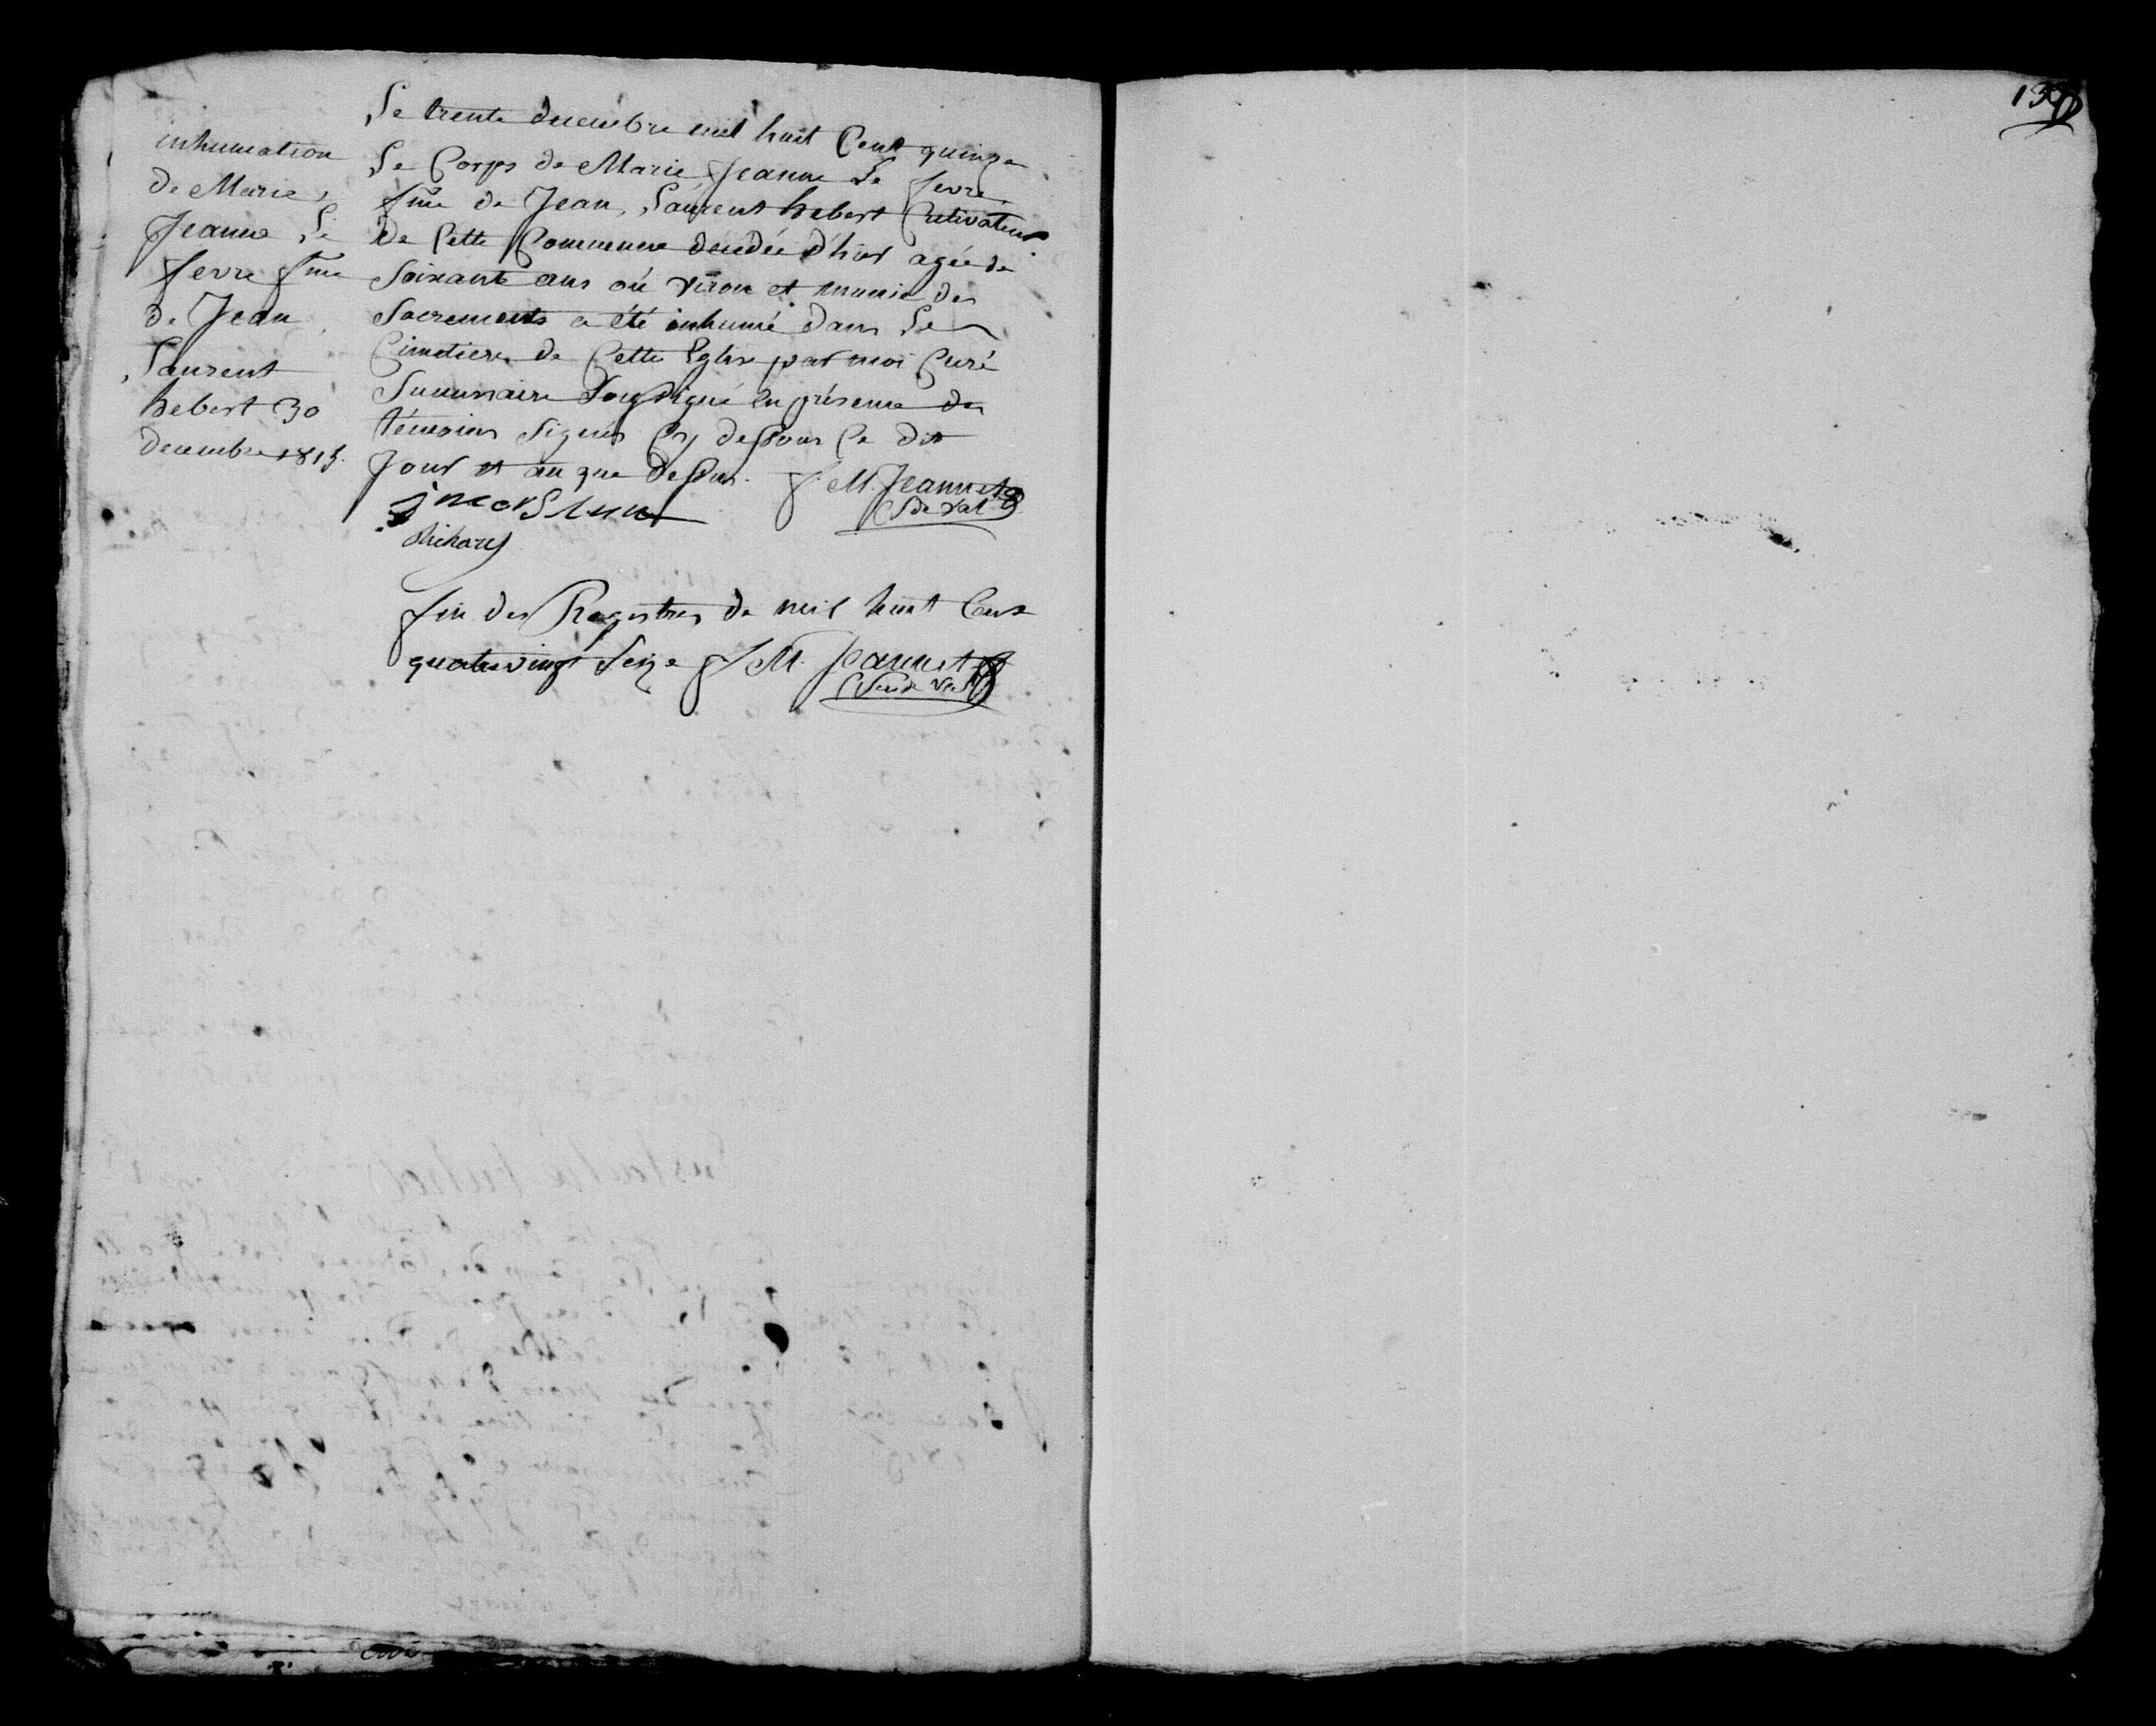 inhumation
de Marie
Jeanne Le
fevre fme
de Jean
Laurent
hebert 30
decembre 1815.
Le trente decembre mil huit Cent quinze
Le Corps de Marie Jeanne Le fevre
fme de Jean Laurent hebert Cultivateur
de Cette Commune décédée d'hier agée de
Soixante ans où viron et munie des
Sacrements a été inhumé dans Le
Cimetiere de Cette Eglise par moi Curé
Soussigné en présence des
témoins Signés Cy dessous Ce dit
Jour et an que dessus. f. M. Jeannet
Richard
fin des Registres de mil huit Cent
quatrevingt Seize f M. Jeannet